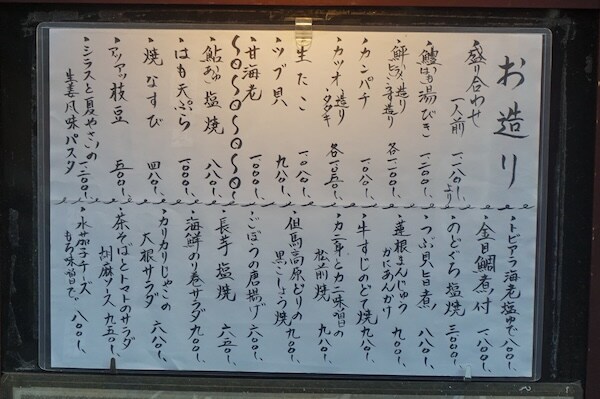 お造り
盛り合わせ
一人前 一、一八〇より
鱧 湯びき 一、二〇〇
造り 各一、二〇〇
カンパチ 一、一〇〇
カツオ 造り タタキ 各一、〇五〇
生たこ 一、〇八〇
ツブ貝 九八〇
甘海老 一、〇〇〇
鮎 塩焼 八八〇
はも天ぷら 一、〇〇〇
焼なすび 四八〇
アツアツ枝豆 五〇〇
シラスと夏やさいの
生姜風味パスタ 一、二〇〇
・トビアラ海老塩ゆで 八〇〇
・金目鯛煮付 一、八〇〇
・のどぐろ塩焼 三、〇〇〇
・つぶ貝旨煮 八八〇
・蓮根まんじゅう
かにあんかけ 九〇〇
・牛すじのどて焼 九八〇
・カニ身とカニ味噌の
松前焼 九八〇
・但馬高原どりの
黒こしょう焼 九〇〇
・ごぼうの唐揚げ 六〇〇
・長芋塩焼 六五〇
・海鮮のり巻サラダ 九〇〇
・カリカリじゃこの
大根サラダ 六八〇
・茶そばとトマトのサラダ
胡麻ソース 九五〇
・水茄子チーズ
もろ味噌で 八〇〇